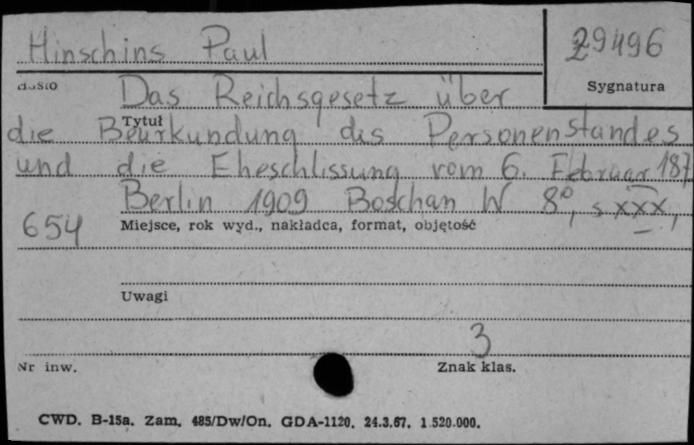 Hinschins Paul
29496
Hasło
Sygnatura
Das Reichsgesetz über
Tytuł
die Beurkundung des Personenstandes
und die Eheschlissung vom 6. Februar 187
Berlin 1909 Boschan W 8°, s. XXX,
654
Miejsce, rok wyd., nakładca, format, objętość
Uwagi
3
Nr inw.
Znak klas.
CWD. B-15a. Zam. 485/Dw/On. GDA-1120. 24.3.67. 1.520.000.